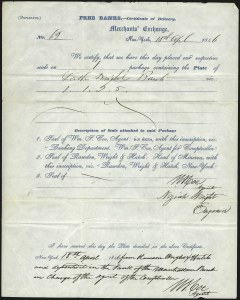 FREE BANKS,—Certificate of Delivery.
Merchants' Exchange,
New-York, 18th April 1846
No. 12
We certify, that we have this day placed and deposited
with in a package containing the Plate of
Bank
1. 1. 2. 5.
Description of Seals attached to said Package
1. Seal of Wm. F. Coe, Agent, in wax, with this inscription, viz:
"Banking Department. Wm. F. Coe, Agent for Comptroller."
2. Seal of Rawdon, Wright & Hatch. Head of Minerva, with
this inscription, viz: "Rawdon, Wright & Hatch."
3. Seal of
Agent
Engraver
I have received this day the Plate described in the above Certificate
New-York, 18th April 1846 from Rawdon Wright & Hatch
and deposited in the vault of the Bank
in Charge of the Agent of the Comptroller.
W. F. Coe
Agent